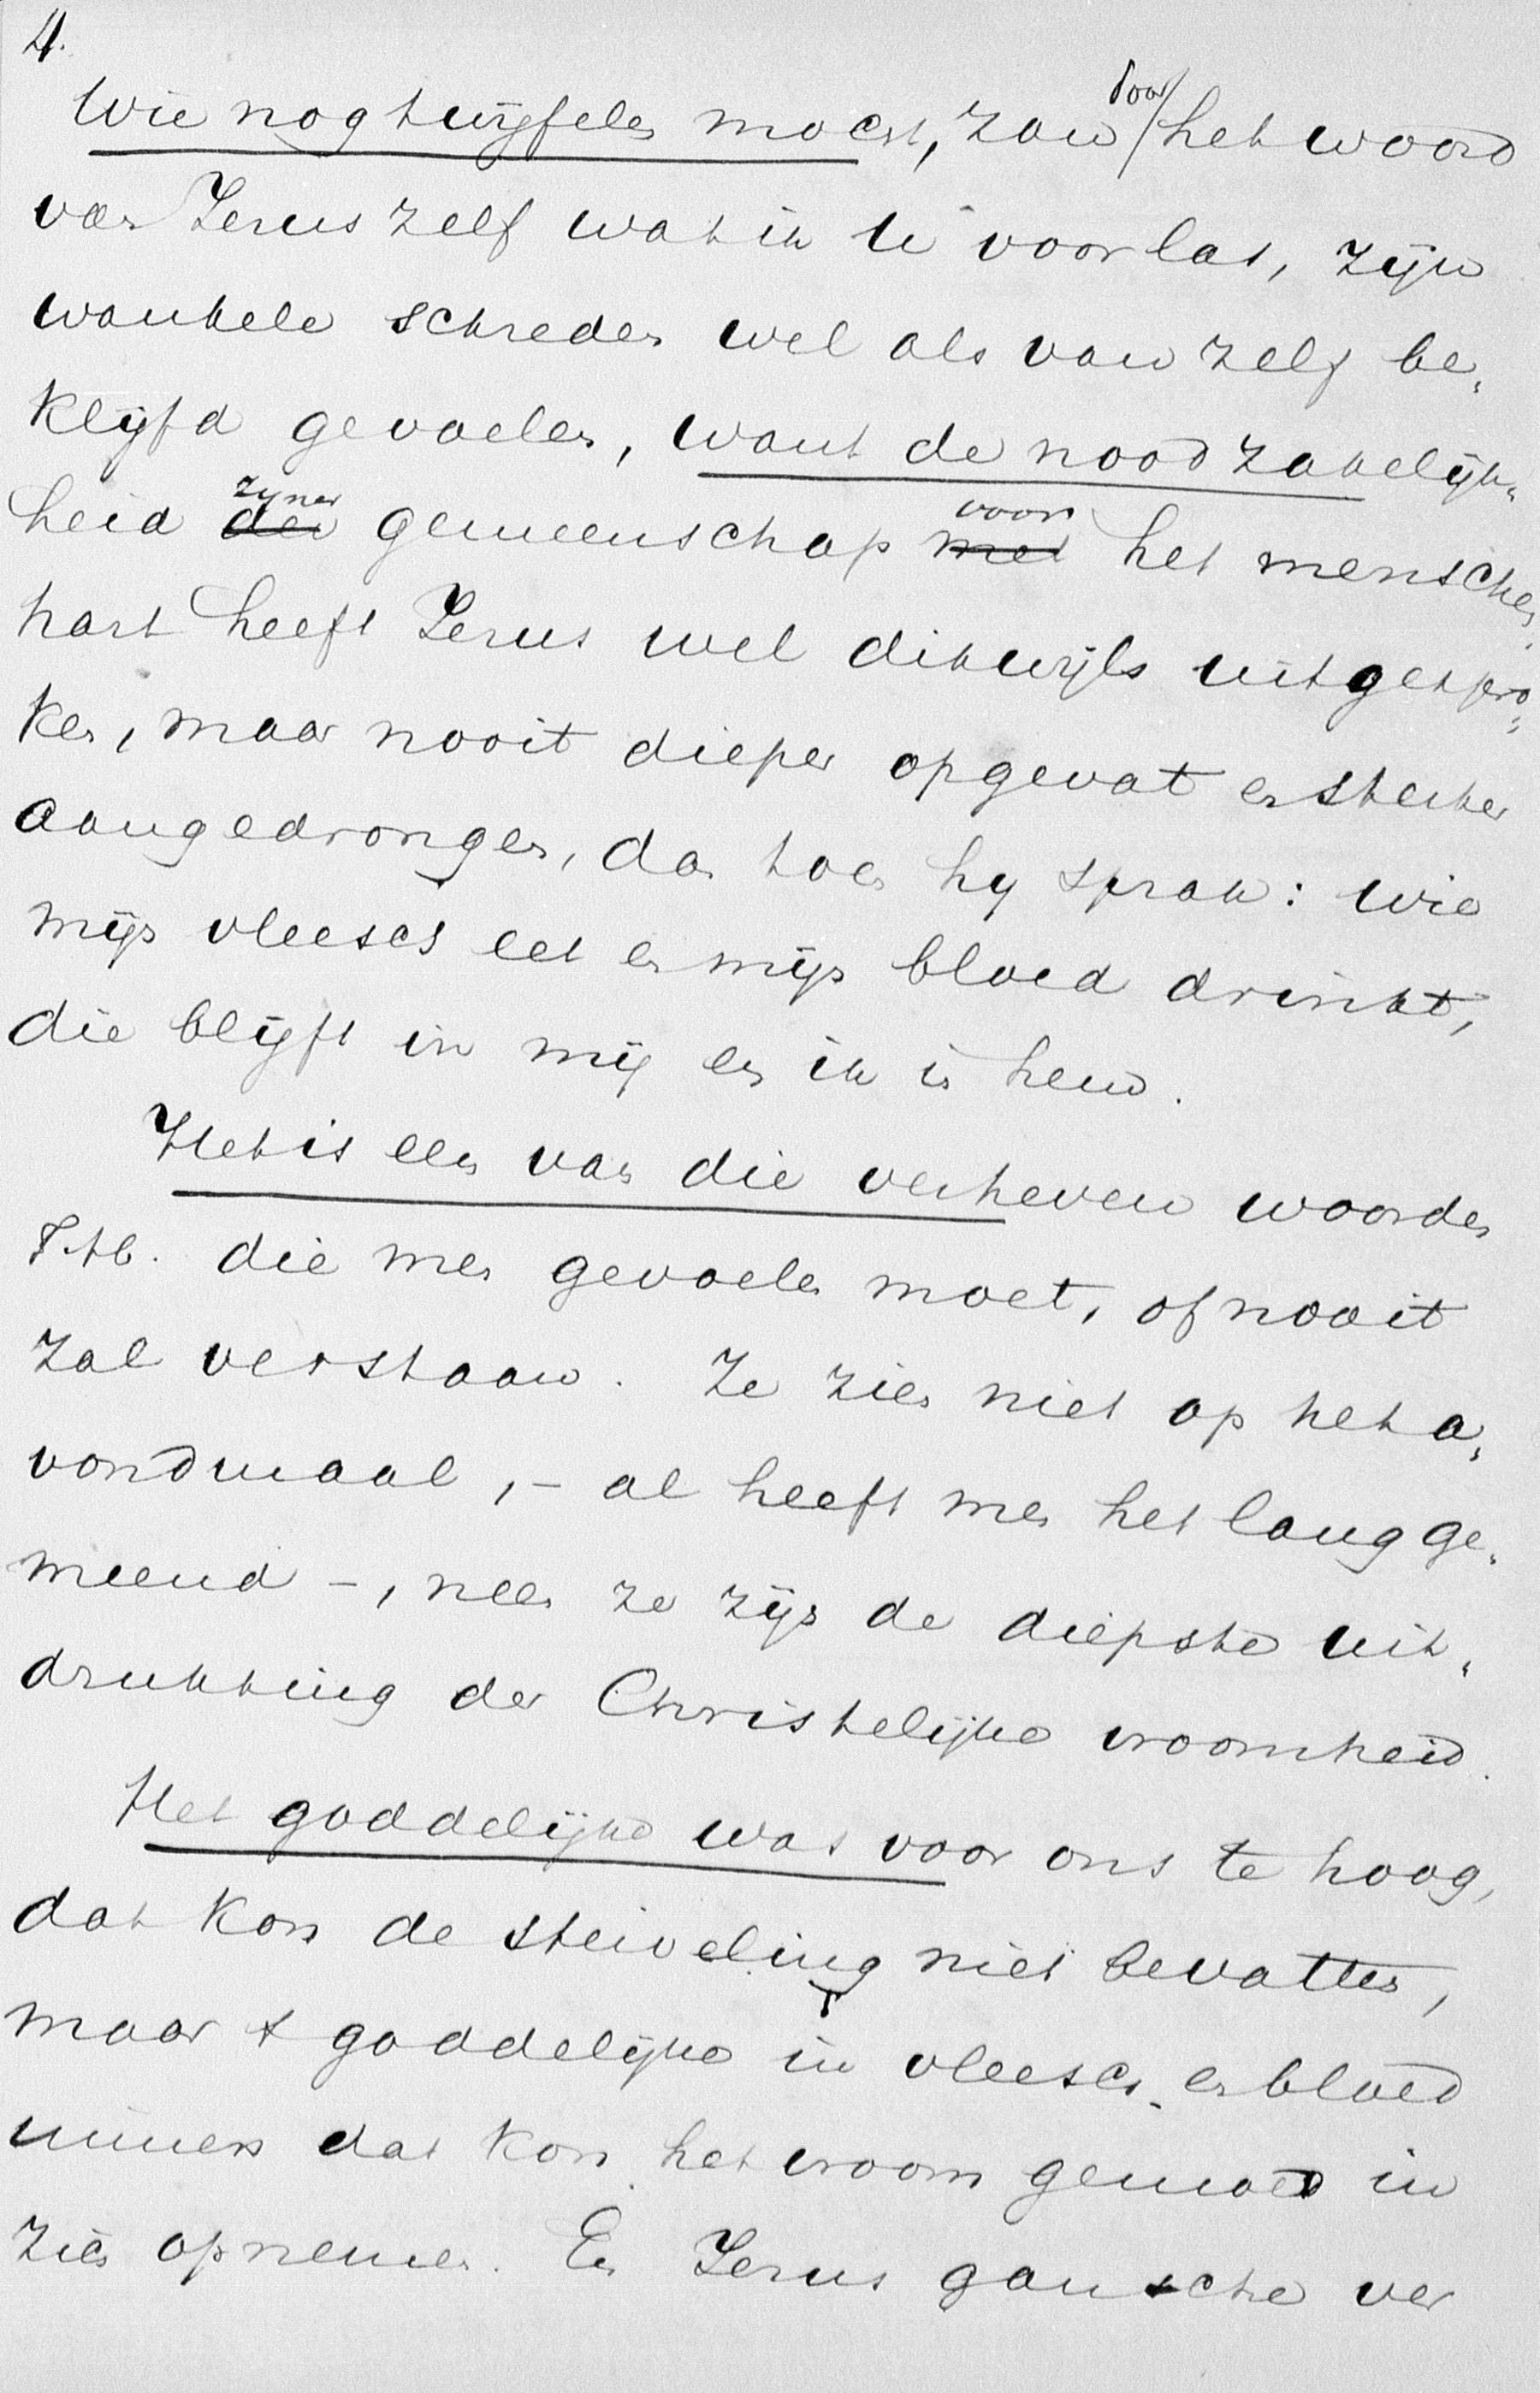 4.
Wie nog twijfelen mocht, zou door het woord
van Jezus zelf wat ik U voorlas, zijn
wankele schreden wel als van zelf be„
klijfd gevoelen, want de noodzakelijk„
heid zijner gemeenschap voor het menschen
hart heeft Jezus wel dikwijls uitgespro„
ken, maar nooit dieper opgevat en sterker
aangedrongen, dan toen hij sprak: wie
mijn vleesch eet en mijn bloed drinkt,
die blijft in mij en ik in hem.
Het is een van die verheven woorden
die men gevoelen moet, of nooit
zal verstaan. Ze zien niet op het a„
vondmaal, – al heeft men het lang ge„
meend –, neen ze zijn de diepste uit„
drukking der Christelijke vroomheid.
Het goddelijke was voor ons te hoog,
dat kon de sterveling niet bevatten,
maar t goddelijke in vleesch en bloed
dat kon het vroom gemoed in
zich opnemen. En Jezus gansche ver